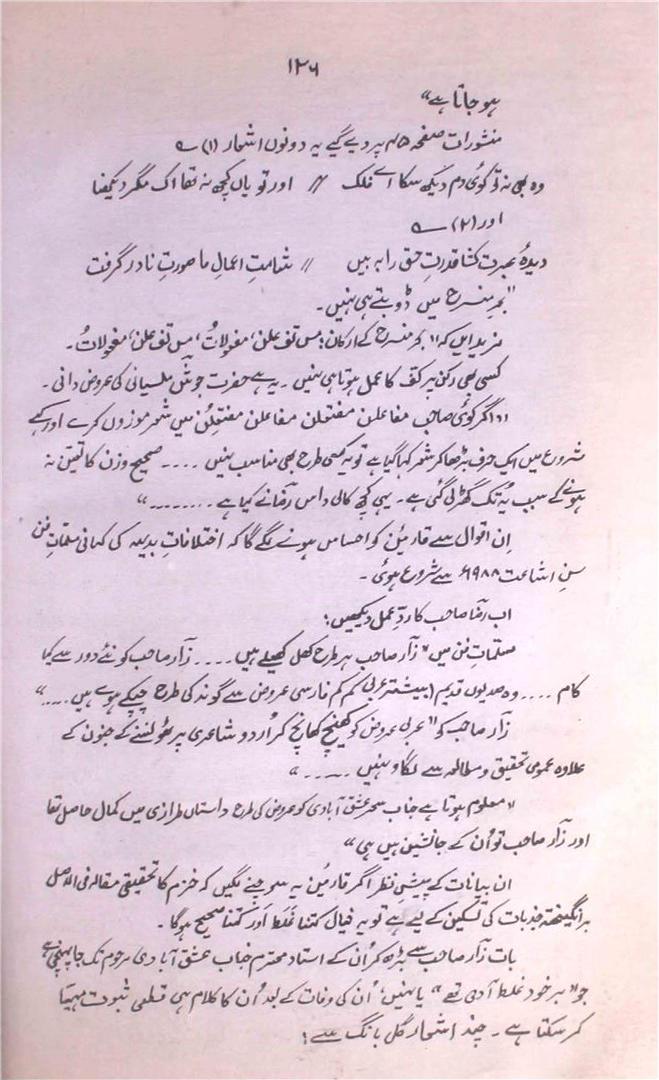 ۱۲۶
ہو جاتا ہے“
منشورات صفحہ ۴۵ پر دیے گیے یہ دونوں اشعار (۱) ؎
وہ بھی نہ تو کوئی دم دیکھ سکا اے فلک // اور تو یاں کچھ نہ تھا اک مگر دیکھنا
اور (۲) ؎
دیدۂ عبرت کشا قدرتِ حق را بہ بیں // شامتِ اعمالِ ما صورتِ نادر گرفت
”بحرِ منسرح میں ڈوبتے ہی نہیں۔
مزید ایں کہ ”بحر منسرح کے ارکان: مس تف علن، مفعولاتُ، مس تف علن، مفعولاتُ۔
کسی بھی رکن پر کف کا عمل ہوتا ہی نہیں۔ یہ ہے حضرت جوش ملسیانی کی عروض دانی۔
”اگر کوئی صاحب مفاعلن مفتعلن مفاعلن مفتعلن میں شعر موزوں کرے اور کہے
شروع میں ایک حرف بڑھا کر شعر کہا گیا ہے تو یہ کسی طرح بھی مناسب نہیں .... صحیح وزن کا تعین نہ
ہونے کے سبب یہ تک گھڑلی گئی ہے۔ یہی کچھ کالی داس رضا نے کیا ہے ........“
اِن اقوال سے قارئین کو احساس ہونے لگے گا کہ اختلافاتِ بدیعہ کی کہانی مسلماتِ فن
سنِ اشاعت ۱۹۸۸ء سے شروع ہوئی۔
اب رضا صاحب کا ردِّ عمل دیکھیں:
مسلماتِ فن میں ”زار صاحب ہر طرح کھل کھیلے ہیں .... زار صاحب کو نئے دور سے کیا
کام .... وہ صدیوں قدیم (بیشتر عربی کم کم فارسی عروض سے گوند کی طرح چپکے ہوے ہیں ....“
زار صاحب کو ”عربی عروض کو کھینچ کھانچ کر اُردو شاعری پر ٹھونسنے کے جنون کے
علاوہ عمومی تحقیق و مطالعہ سے لگاو نہیں .....“
”معلوم ہوتا ہے جناب سحر عشق آبادی کو عروض کی طرح داستاں طرازی میں کمال حاصل تھا
اور زار صاحب تو اُن کے جانشین ہیں ہی“
ان بیانات کے پیشِ نظر اگر قارئین یہ سوچنے لگیں کہ خزم کا تحقیقی مقالہ فی الاصل
برانگیختہ جذبات کی تسکین کے لیے ہے تو یہ خیال کتنا غلط اور کتنا صحیح ہوگا۔
بات زار صاحب سے بڑھ کر اُن کے استاد محترم جناب عشق آبادی مرحوم تک جا پہنچی ہے
جو ”بر خود غلط آدمی تھے“ یا نہیں، اُن کی وفات کے بعد اُن کا کلام ہی قطعی ثبوت مہیّا
کر سکتا ہے۔ چند اشعار گل بانگ سے: